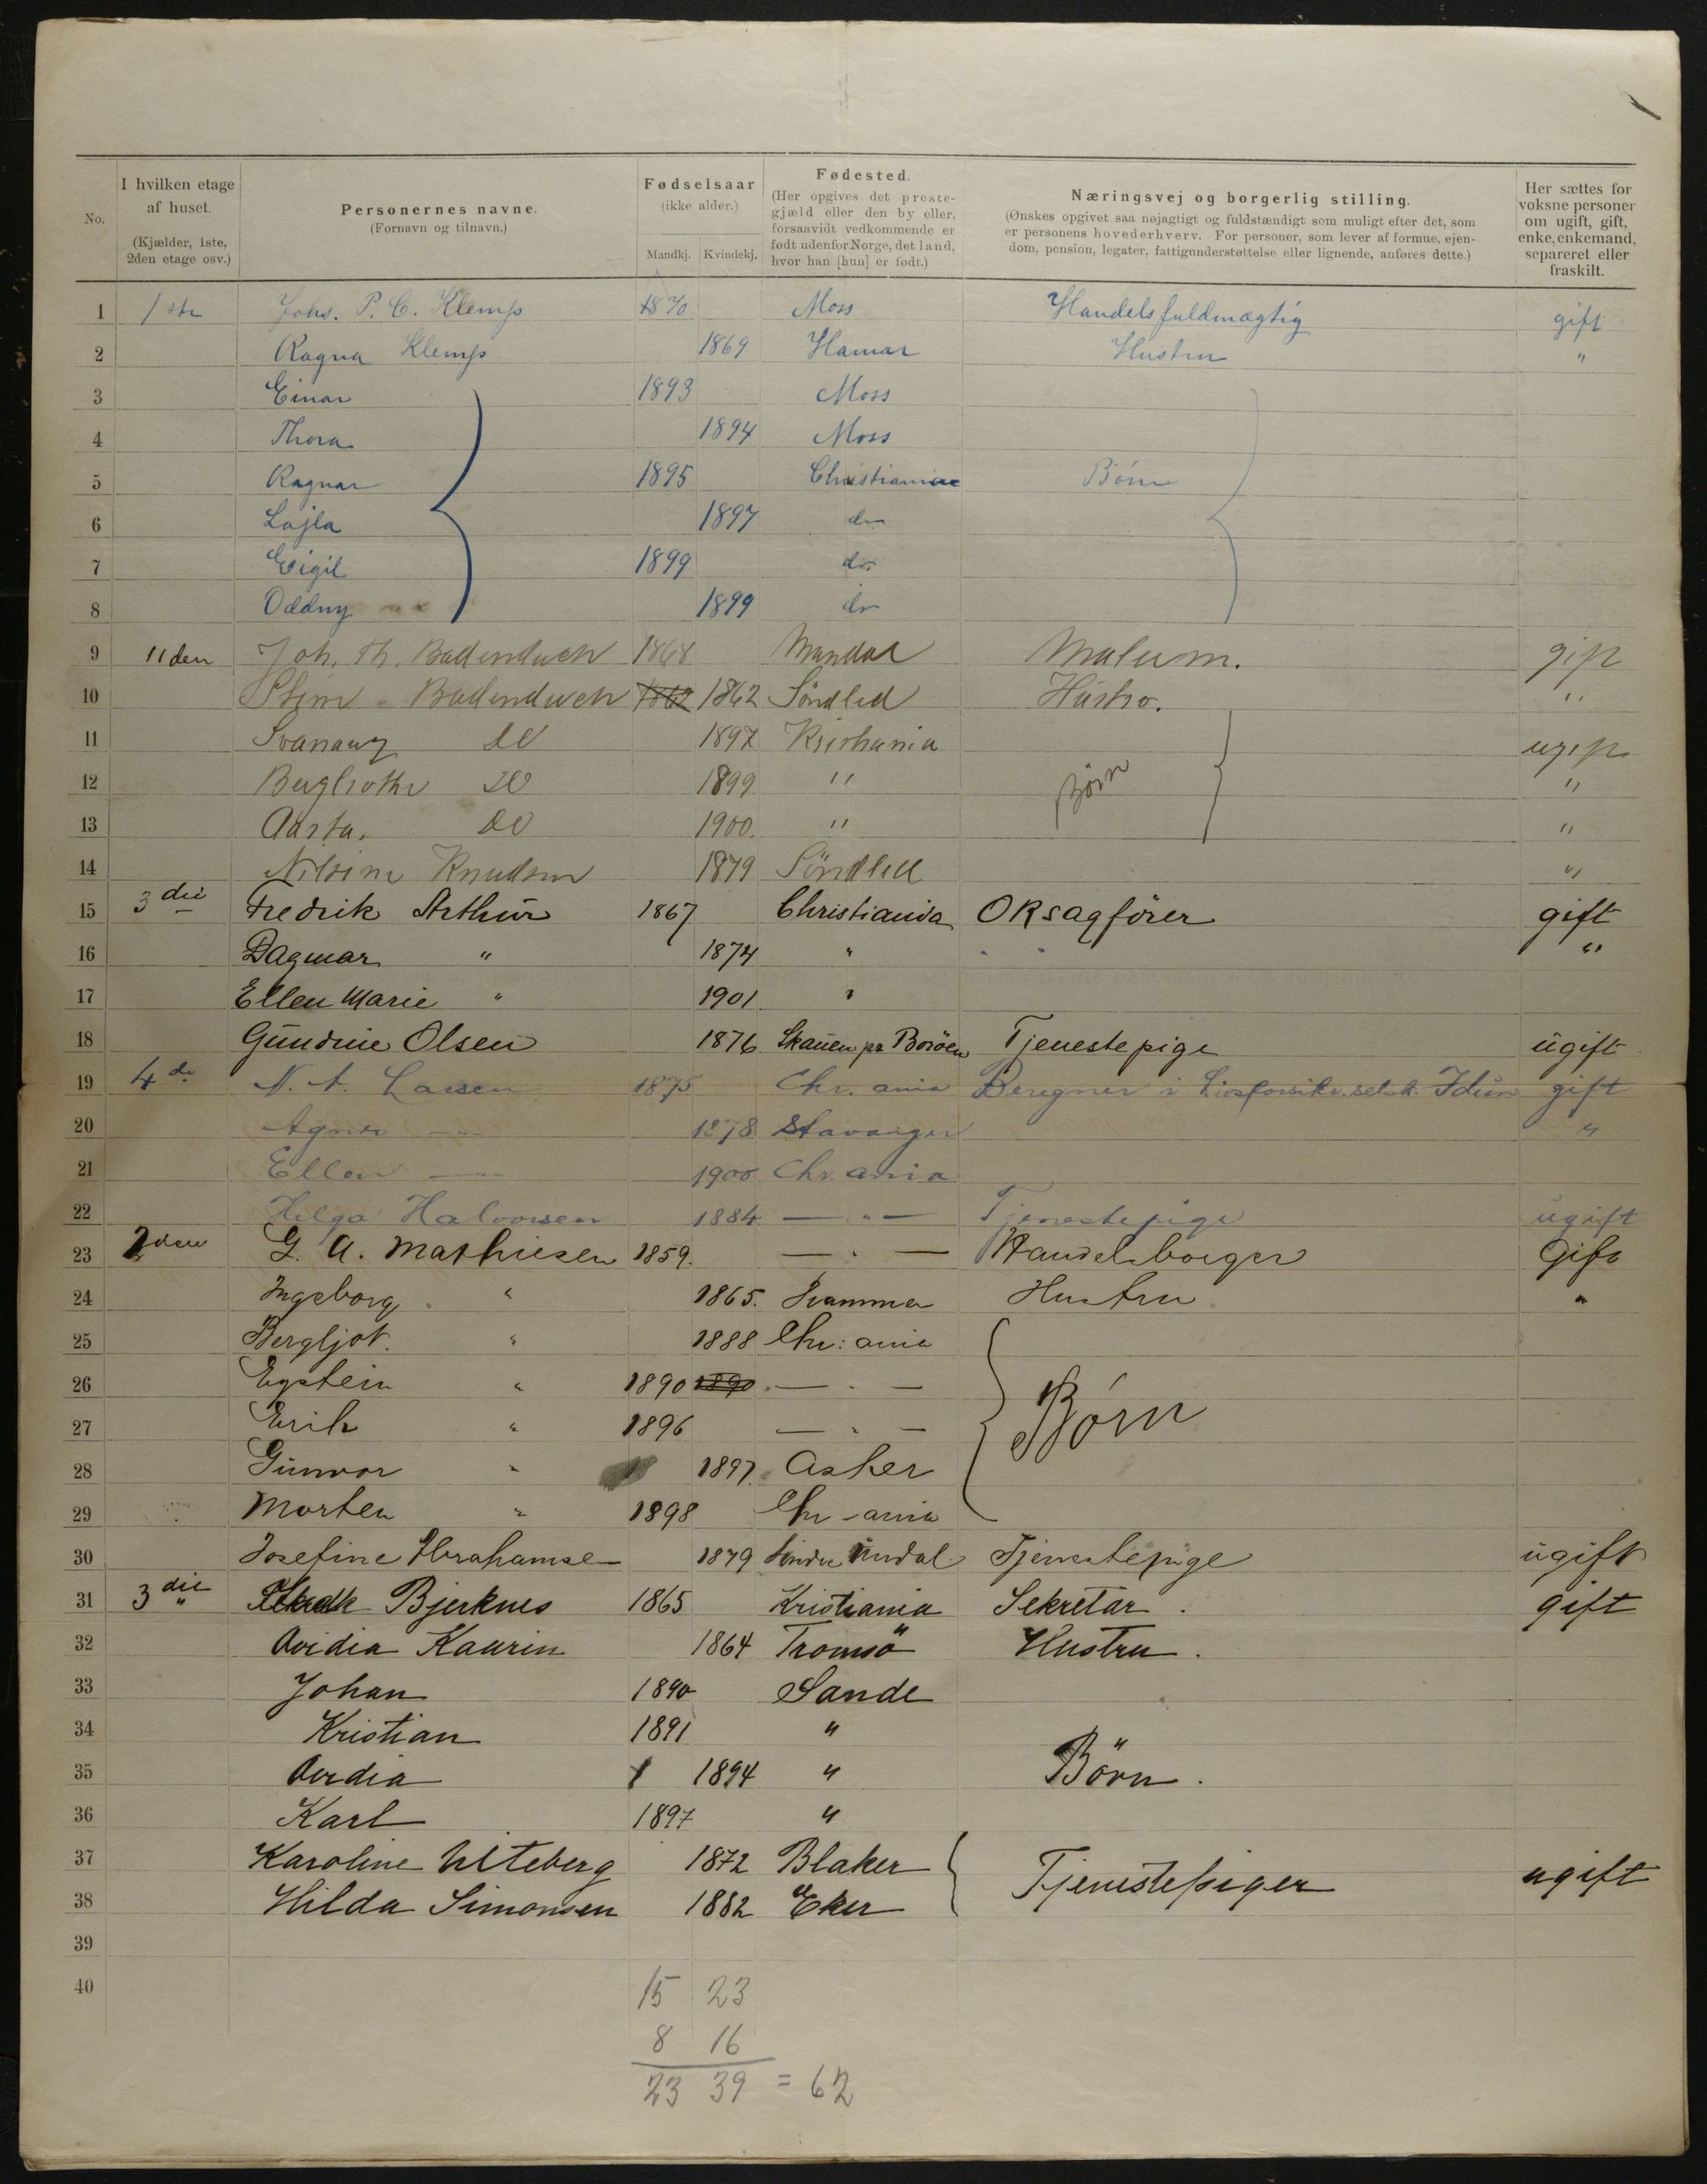 No. I hvilken etage af huset. (Kjælder, 1ste, 2den etage osv.) Personernes navne. (Fornavn og tilnavn.) Fødselsaar (ikke alder.) Mandkj. Kvindekj. Fødested. (Her opgives det prestegjæld eller den by eller, forsaavidt vedkommende er født udenfor Norge, det land, hvor han [hun] er født.) Næringsvej og borgerlig stilling. (Ønskes opgivet saa nøjagtigt og fuldstændigt som muligt efter det, som er personens hovederhverv. For personer, som lever af formue, ejendom, pension, legater, fattigunderstøttelse eller lignende, anføres dette.) Her sættes for voksne personer om ugift, gift, enke, enkemand, separeret eller fraskilt.
1 1ste Johs. P. C. Klemp 1870 Moss Handelsfuldmægtig gift
2 Ragna Klemp 1869 Hamar Hustru "
3 Einar 1893 Moss
4 Thora 1894 Moss
5 Ragnar 1895 Christiania Börn
6 Lajla 1897 do
7 Eigil 1899 do
8 Oddny 1899 do
9 11den Joh. Th. Badendieck 1868 Mandal gift
10 Badendieck 1862 1862 Söndled Hustro. "
11 Svanaug Do 1897 Kristiania ugift
12 Do 1899 " Børn "
13 Aasta. Do 1900. " "
14 Nilsine Knudsen 1879 Söndled "
15 3die Fredrik Arthur 1867 Christiania ORsagfører gift
16 Dagmar " 1874 " "
17 Ellen Marie " 1901 "
18 Gundine Olsen 1876 Skauen pr Tjenestepige ugift
19 4de N. A. Larsen 1875 Chr. ania Beregner i Livsforsikr. selsk. Idun gift
20 Agnes —"— 1878 Stavanger "
21 Ellen —"— 1900 Chr. ania
22 Helga Halvorsen 1884 —"— Tjenestepige ugift
23 2den G. A. Mathiesen 1859. —"— Handelsborger Gift
24 Ingeborg " 1865. Hustru "
25 Bergljot. " 1888 Chr: ania
26 Eystein " 1890 1890 —"— Börn
27 Erik " 1896 —"—
28 Gunvor " 1897. Asker
29 Morten " 1898 Chr-ania
30 Josefine Abrahamsen 1879 Söndre Undal Tjenestepige ugift
31 3die " Bjerknes 1865 Kristiania Sekretær. gift
32 Ovidia Kaurin 1864 Tromsö Hustru.
33 Johan 1890 Sande
34 Kristian 1891 "
35 Ovidia 1894 " Börn.
36 Karl 1897 "
37 Karoline Uteberg 1872 Blaker Tjenestepiger ugift
38 Hilda Simonsen 1882 Eker
39
40
15 23
8 16
23 39 = 62